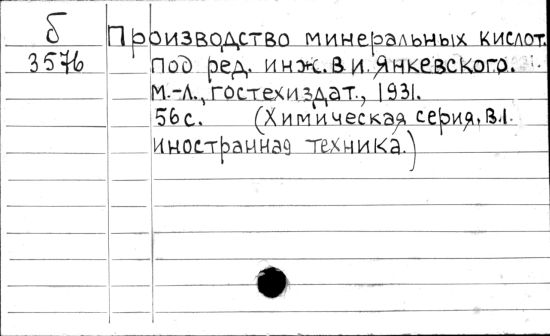 б
3576
Производство минеральных кислот.
Под ред. инж. В.И. Янкевского.
М.-Л., гостехиздат., 1931.
56 с. (Химическая серия, В.1.
иностранная техника.)